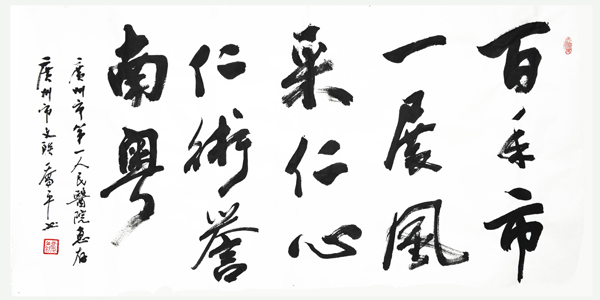 百年市
一展風
采仁心
仁術誉
南粤
廣州市第一人民醫院惠存
廣州市文联喬平书